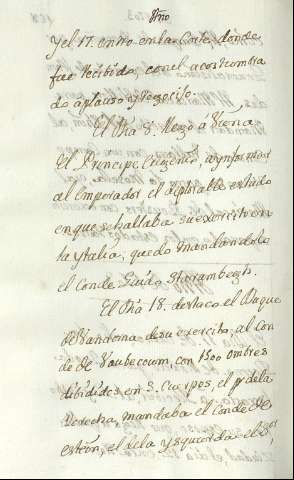 Vno
y el 17. entro en la Corte, donde
fue Recibido, con el acostumbra
do aplauso y Regocijo.
El Dia 8. llego á Viena
El Principe Eugenio, a ynformar
al Emperador el deplorable estado
en que se hallaba su exercito en
la ytalia, quedo mandandole
el Conde Guido Starambegh.
El Dia 18. destaco el Duque
de Vandoma de su exercito, al Con
de de Vaubecourt, con 1500 ombres
dibididos en 3. Cuerpos, el pr de la
Derecha, mandaba el Conde de
estein, el de la ysquierda el